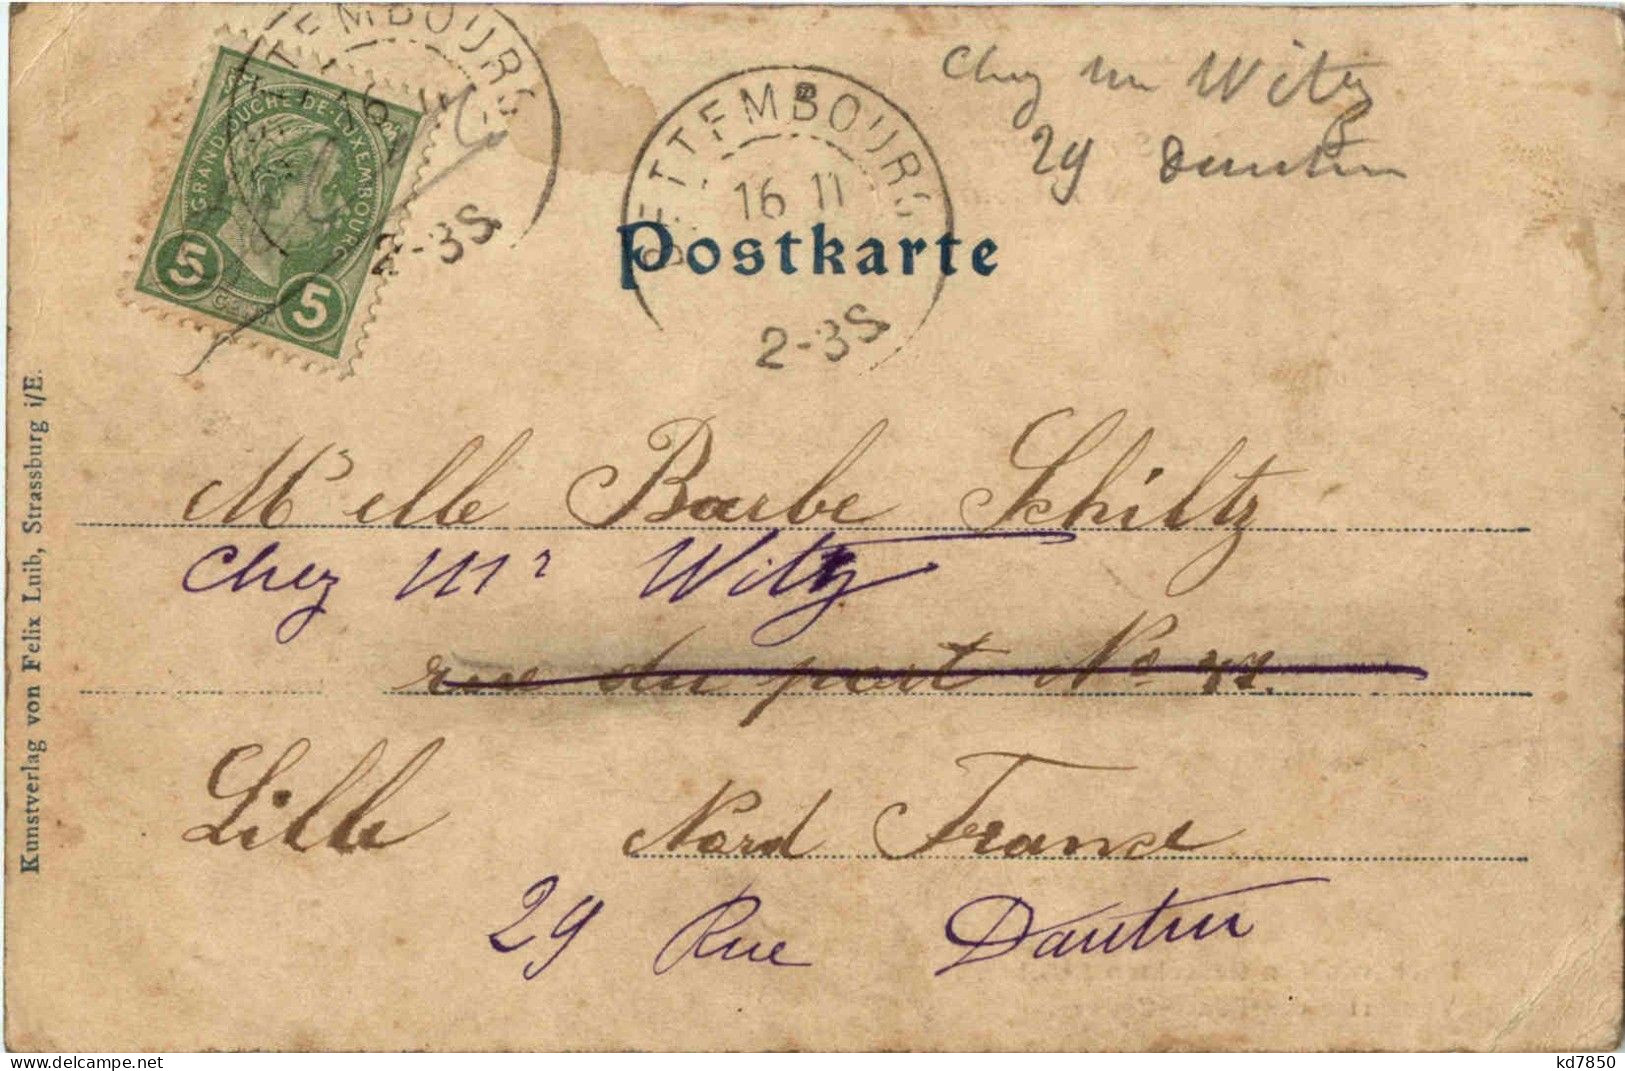 BETTEMBOURG
GRAND-DUCHÉ-DE-LUXEMBOURG
5
5
2-3S
BETTEMBOURG
16 11
2-3S
Chez Mr Witz
29
Postkarte
Melle Barbe Schiltz
Chez Mr Witz
rue du port No
Lille Nord France
29 Rue Dantin
Kunstverlag von Felix Luib, Strassburg i/E.
kd7850